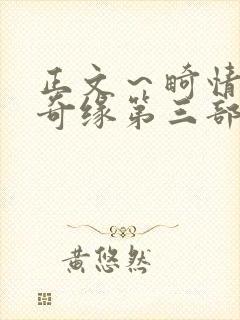 正文～畸情
奇缘第三部
黄悠然